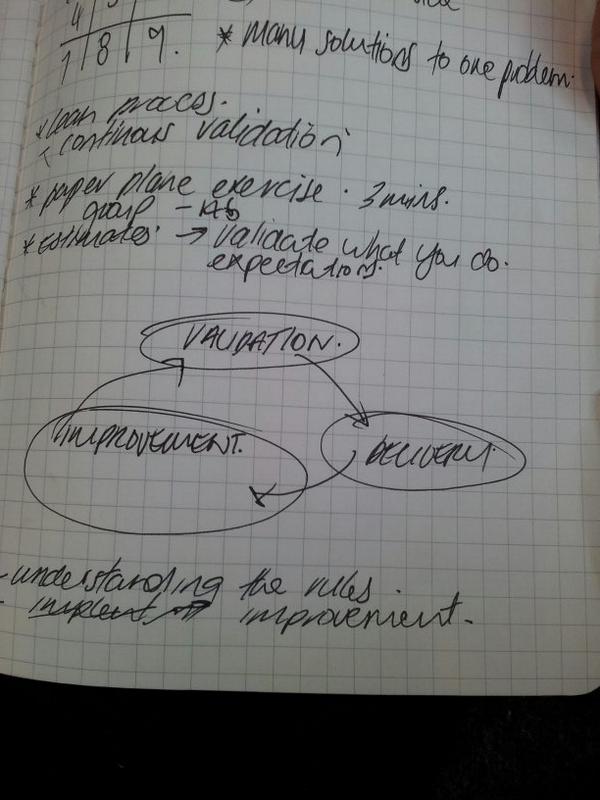 4
7 8 9.
* Many solutions to one problem.
* lean process.
* continous validation
* paper plane exercise. 3 mins.
group -
* estimates. → validate what you do.
expectations.
VALIDATION.
IMPROVEMENT.
DELIVERY.
- understanding the rules.
- implement improvement.